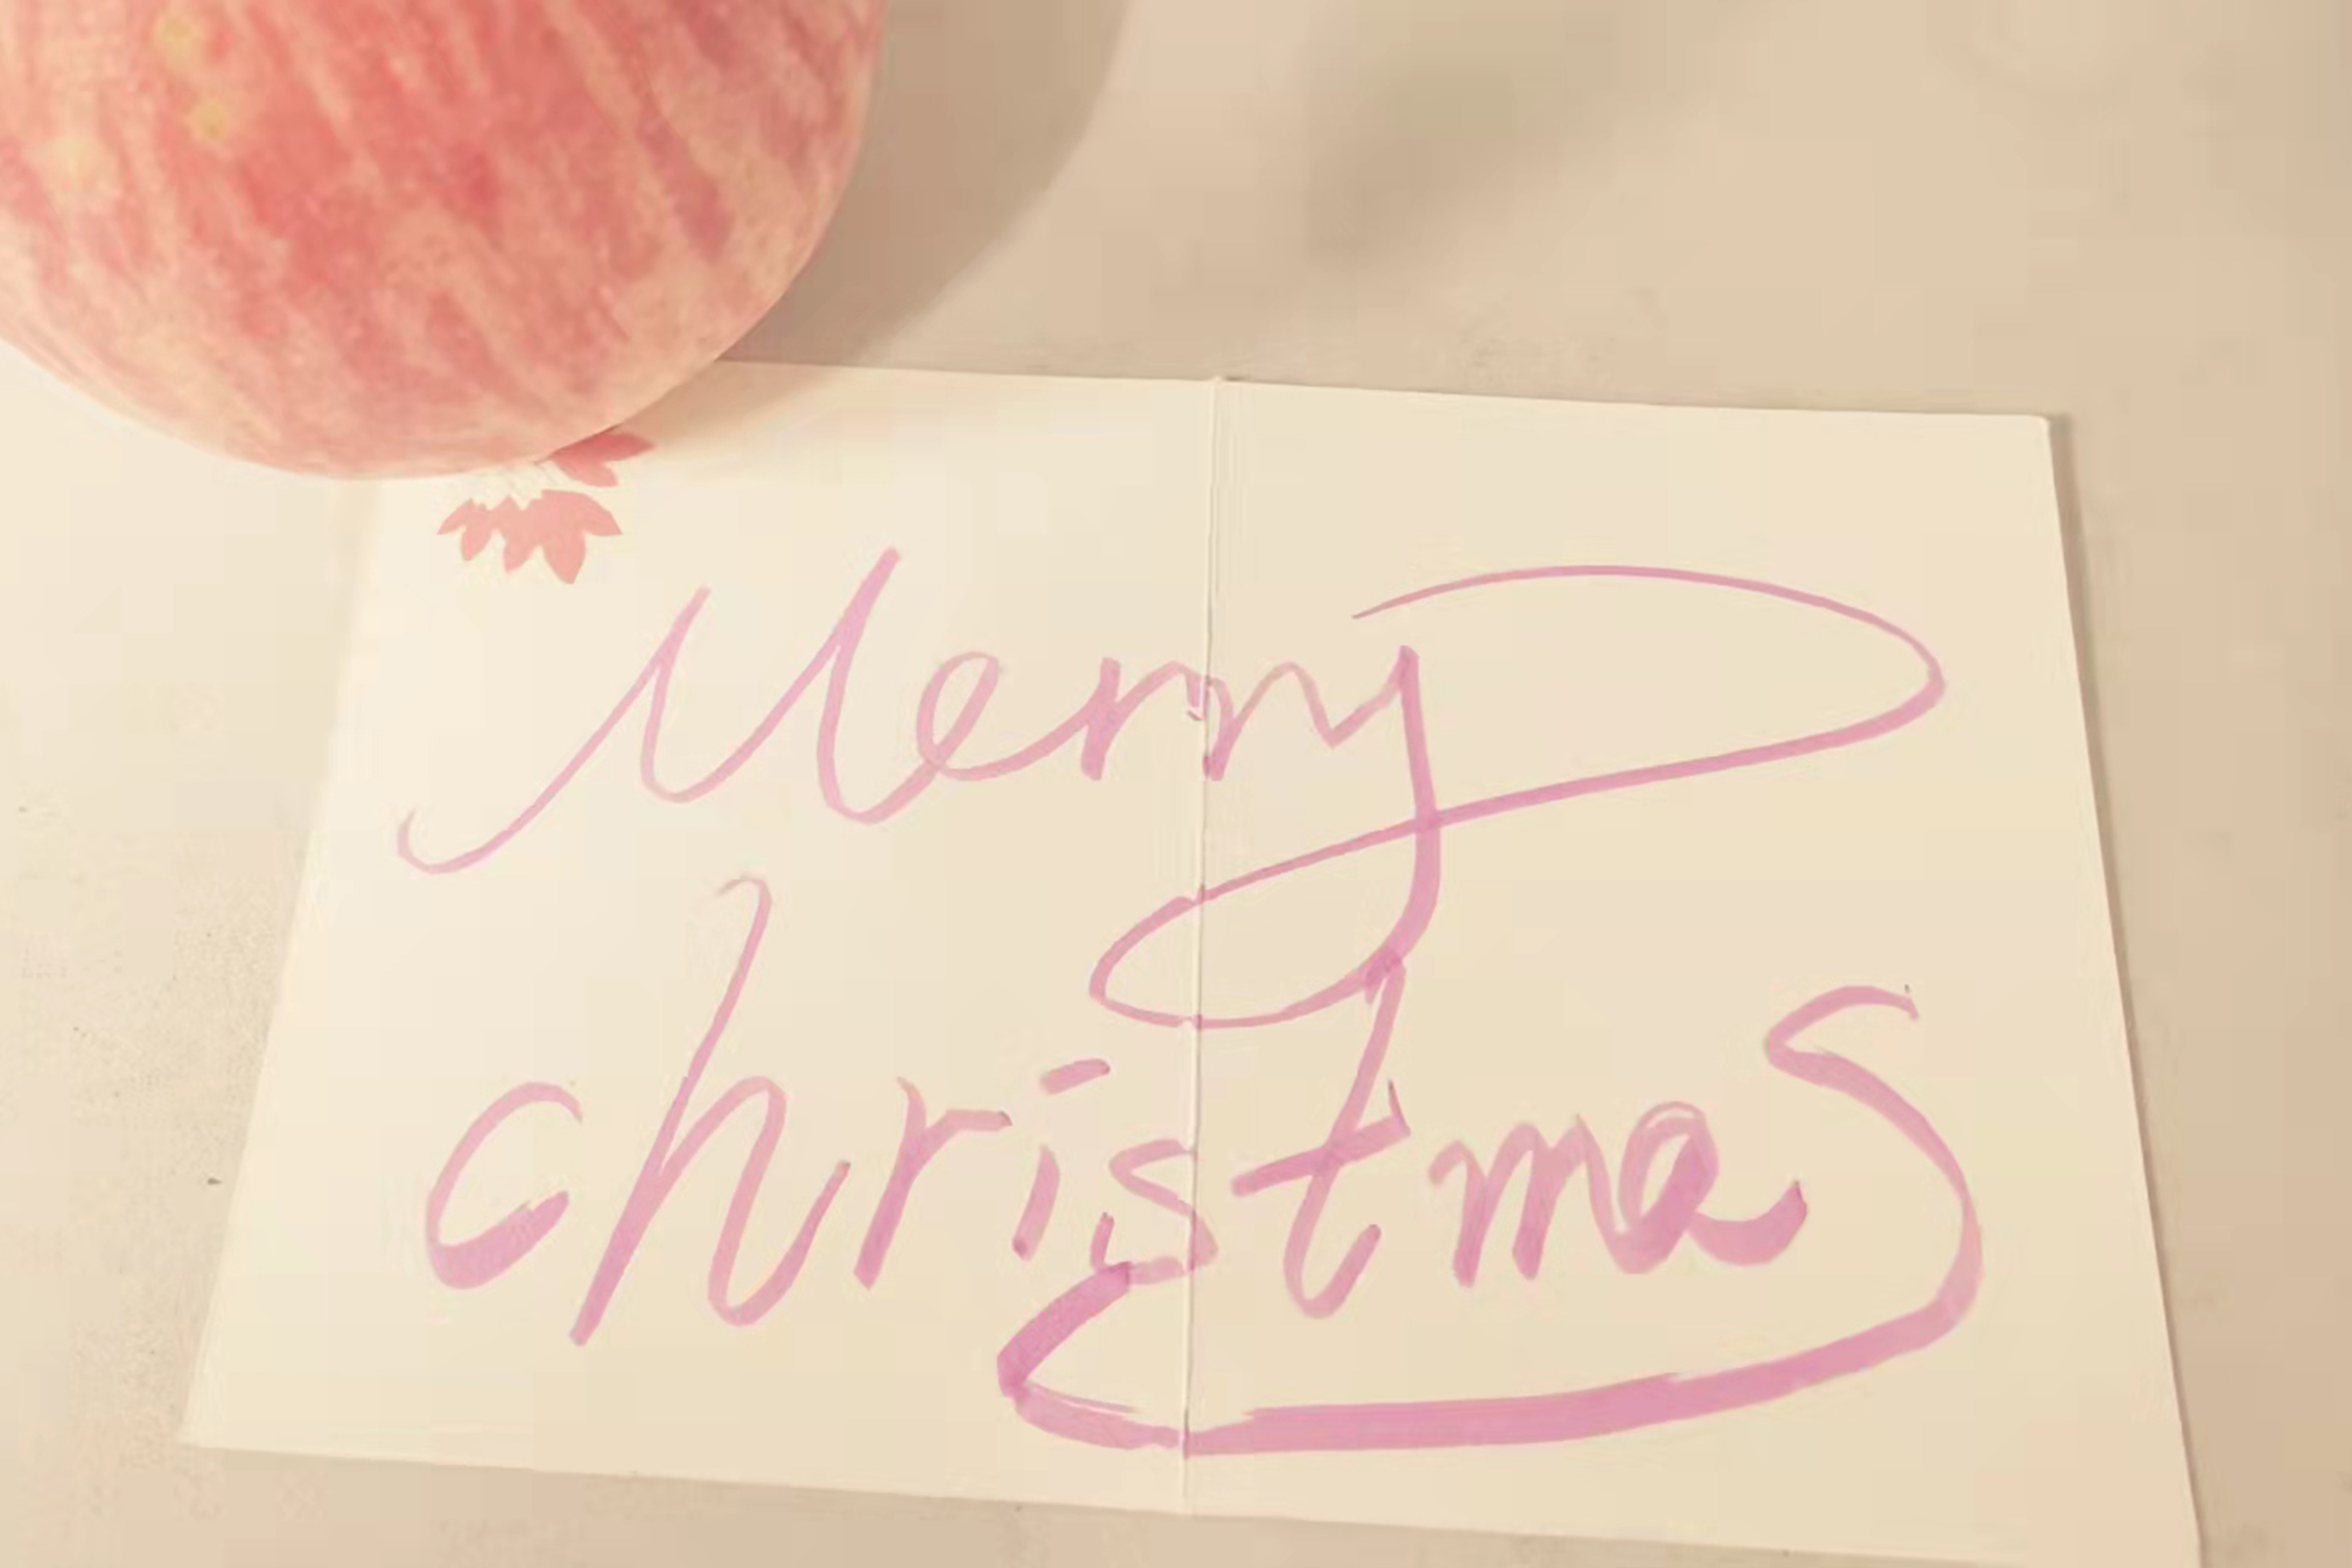 Merry
christmas